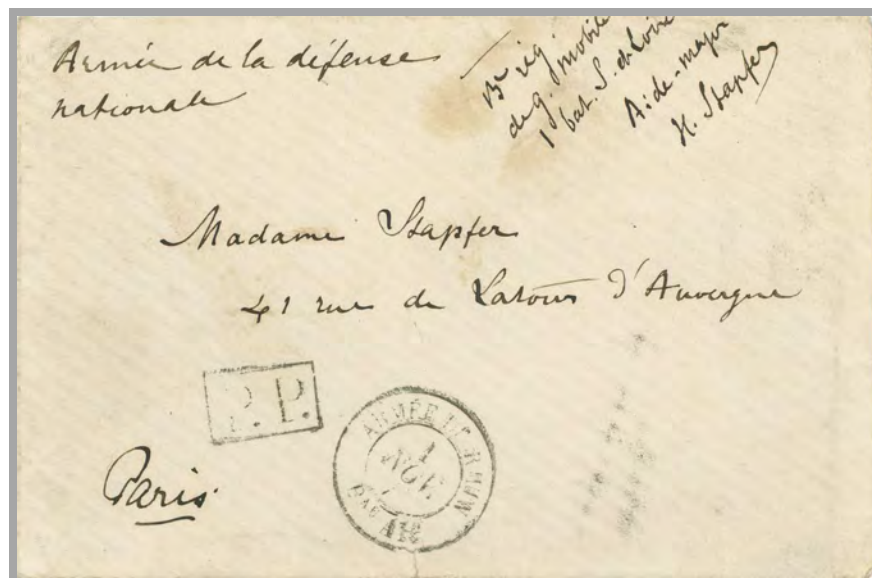 Armée de la défense
nationale
Bᵉ rég.
de g. mobile
1 bat. S. & Loire
Aide-major
H. Stapfer
Madame Stapfer
41 rue de Latour d'Auvergne
P.P.
ARMÉE DU RHIN
1
NOV.
Paris